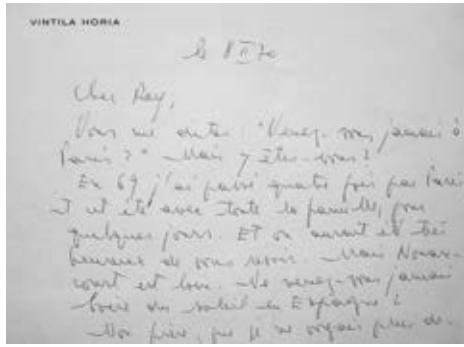 VINTILA HORIA
le 8 II 70
Cher Ray,
Vous me dites: "Venez-vous jamais à
Paris?" Mais y êtes-vous?
En 69 j'ai passé quatre fois par Paris
et été avec toute la famille, pour
quelques jours. Et on aurait été très
heureux de vous revoir. Mais
court est loin. Ne venez-vous jamais
boire du soleil en Espagne?
Mon frère, que je ne voyais plus de-